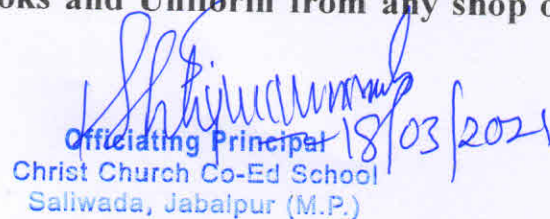 ooks and Uniform from any shop o
Officiating Principal 18/03/2021
Christ Church Co-Ed School
Saliwada, Jabalpur (M.P.)